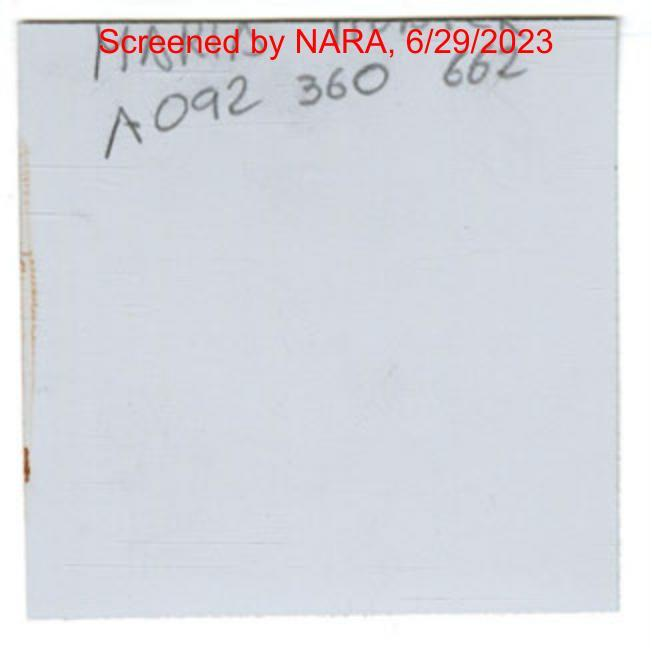 MARIA
Screened by NARA, 6/29/2023
A092 360 662